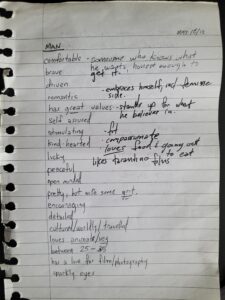 MAN
comfortable - someone who knows what
he wants, honest enough to
get it.
brave
driven
- embraces himself, incl feminine
side.
romantic
has great values - stands up for what
he believes in.
self assured
stimulating - fit
- compassionate
kind hearted - loves food & going out
to eat
lucky - likes tarantino films
peaceful
open minded
pretty, but with some grit.
encouraging
detailed
cultured/worldly/travelled
loves animals/
between 25 - 35
has a love for film/photography
sparkly eyes